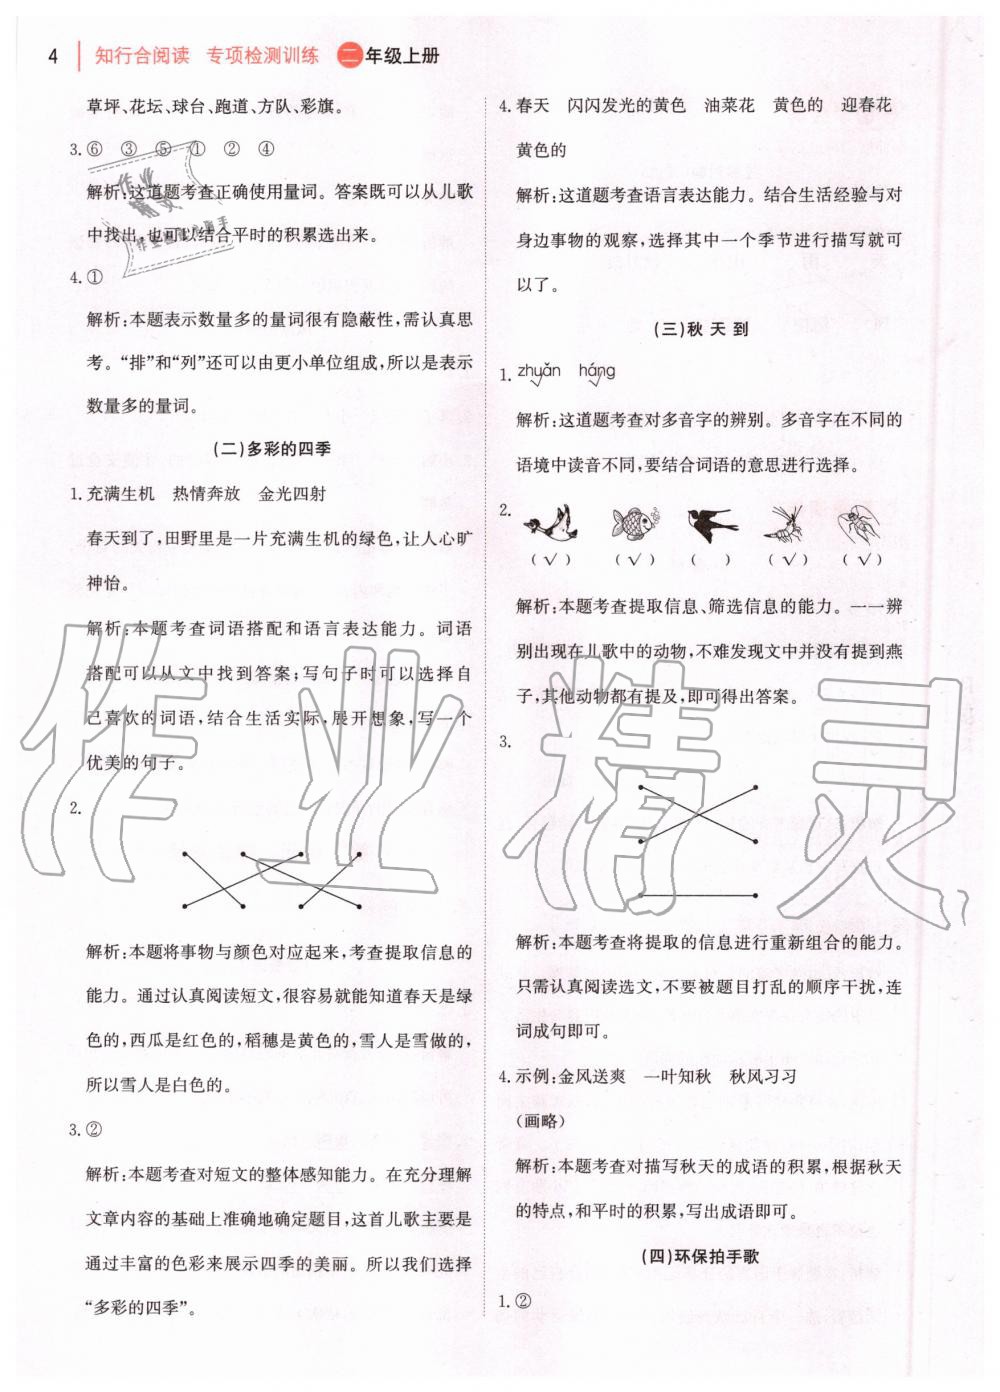 4 知行合阅读 专项检测训练 二年级上册
草坪、花坛、球台、跑道、方队、彩旗。
3.⑥ ③ ⑤ ① ② ④
解析:这道题考查正确使用量词。答案既可以从儿歌
中找出,也可以结合平时的积累选出来。
4.①
解析:本题表示数量多的量词很有隐蔽性,需认真思
考。“排”和“列”还可以由更小单位组成,所以是表示
数量多的量词。
(二)多彩的四季
1.充满生机 热情奔放 金光四射
春天到了,田野里是一片充满生机的绿色,让人心旷
神怡。
解析:本题考查词语搭配和语言表达能力。词语
搭配可以从文中找到答案;写句子时可以选择自
己喜欢的词语,结合生活实际,展开想象,写一个
优美的句子。
2.
解析:本题将事物与颜色对应起来,考查提取信息的
能力。通过认真阅读短文,很容易就能知道春天是绿
色的,西瓜是红色的,稻穗是黄色的,雪人是雪做的,
所以雪人是白色的。
3.②
解析:本题考查对短文的整体感知能力。在充分理解
文章内容的基础上准确地确定题目,这首儿歌主要是
通过丰富的色彩来展示四季的美丽。所以我们选择
“多彩的四季”。
4.春天 闪闪发光的黄色 油菜花 黄色的 迎春花
黄色的
解析:这道题考查语言表达能力。结合生活经验与对
身边事物的观察,选择其中一个季节进行描写就可
以了。
(三)秋天到
1. zhuǎn háng
解析:这道题考查对多音字的辨别。多音字在不同的
语境中读音不同,要结合词语的意思进行选择。
2.
(√) (√) ( ) (√) (√)
解析:本题考查提取信息、筛选信息的能力。一一辨
别出现在儿歌中的动物,不难发现文中并没有提到燕
子,其他动物都有提及,即可得出答案。
3.
解析:本题考查将提取的信息进行重新组合的能力。
只需认真阅读选文,不要被题目打乱的顺序干扰,连
词成句即可。
4.示例:金风送爽 一叶知秋 秋风习习
(画略)
解析:本题考查对描写秋天的成语的积累,根据秋天
的特点,和平时的积累,写出成语即可。
(四)环保拍手歌
1.②
作业精灵